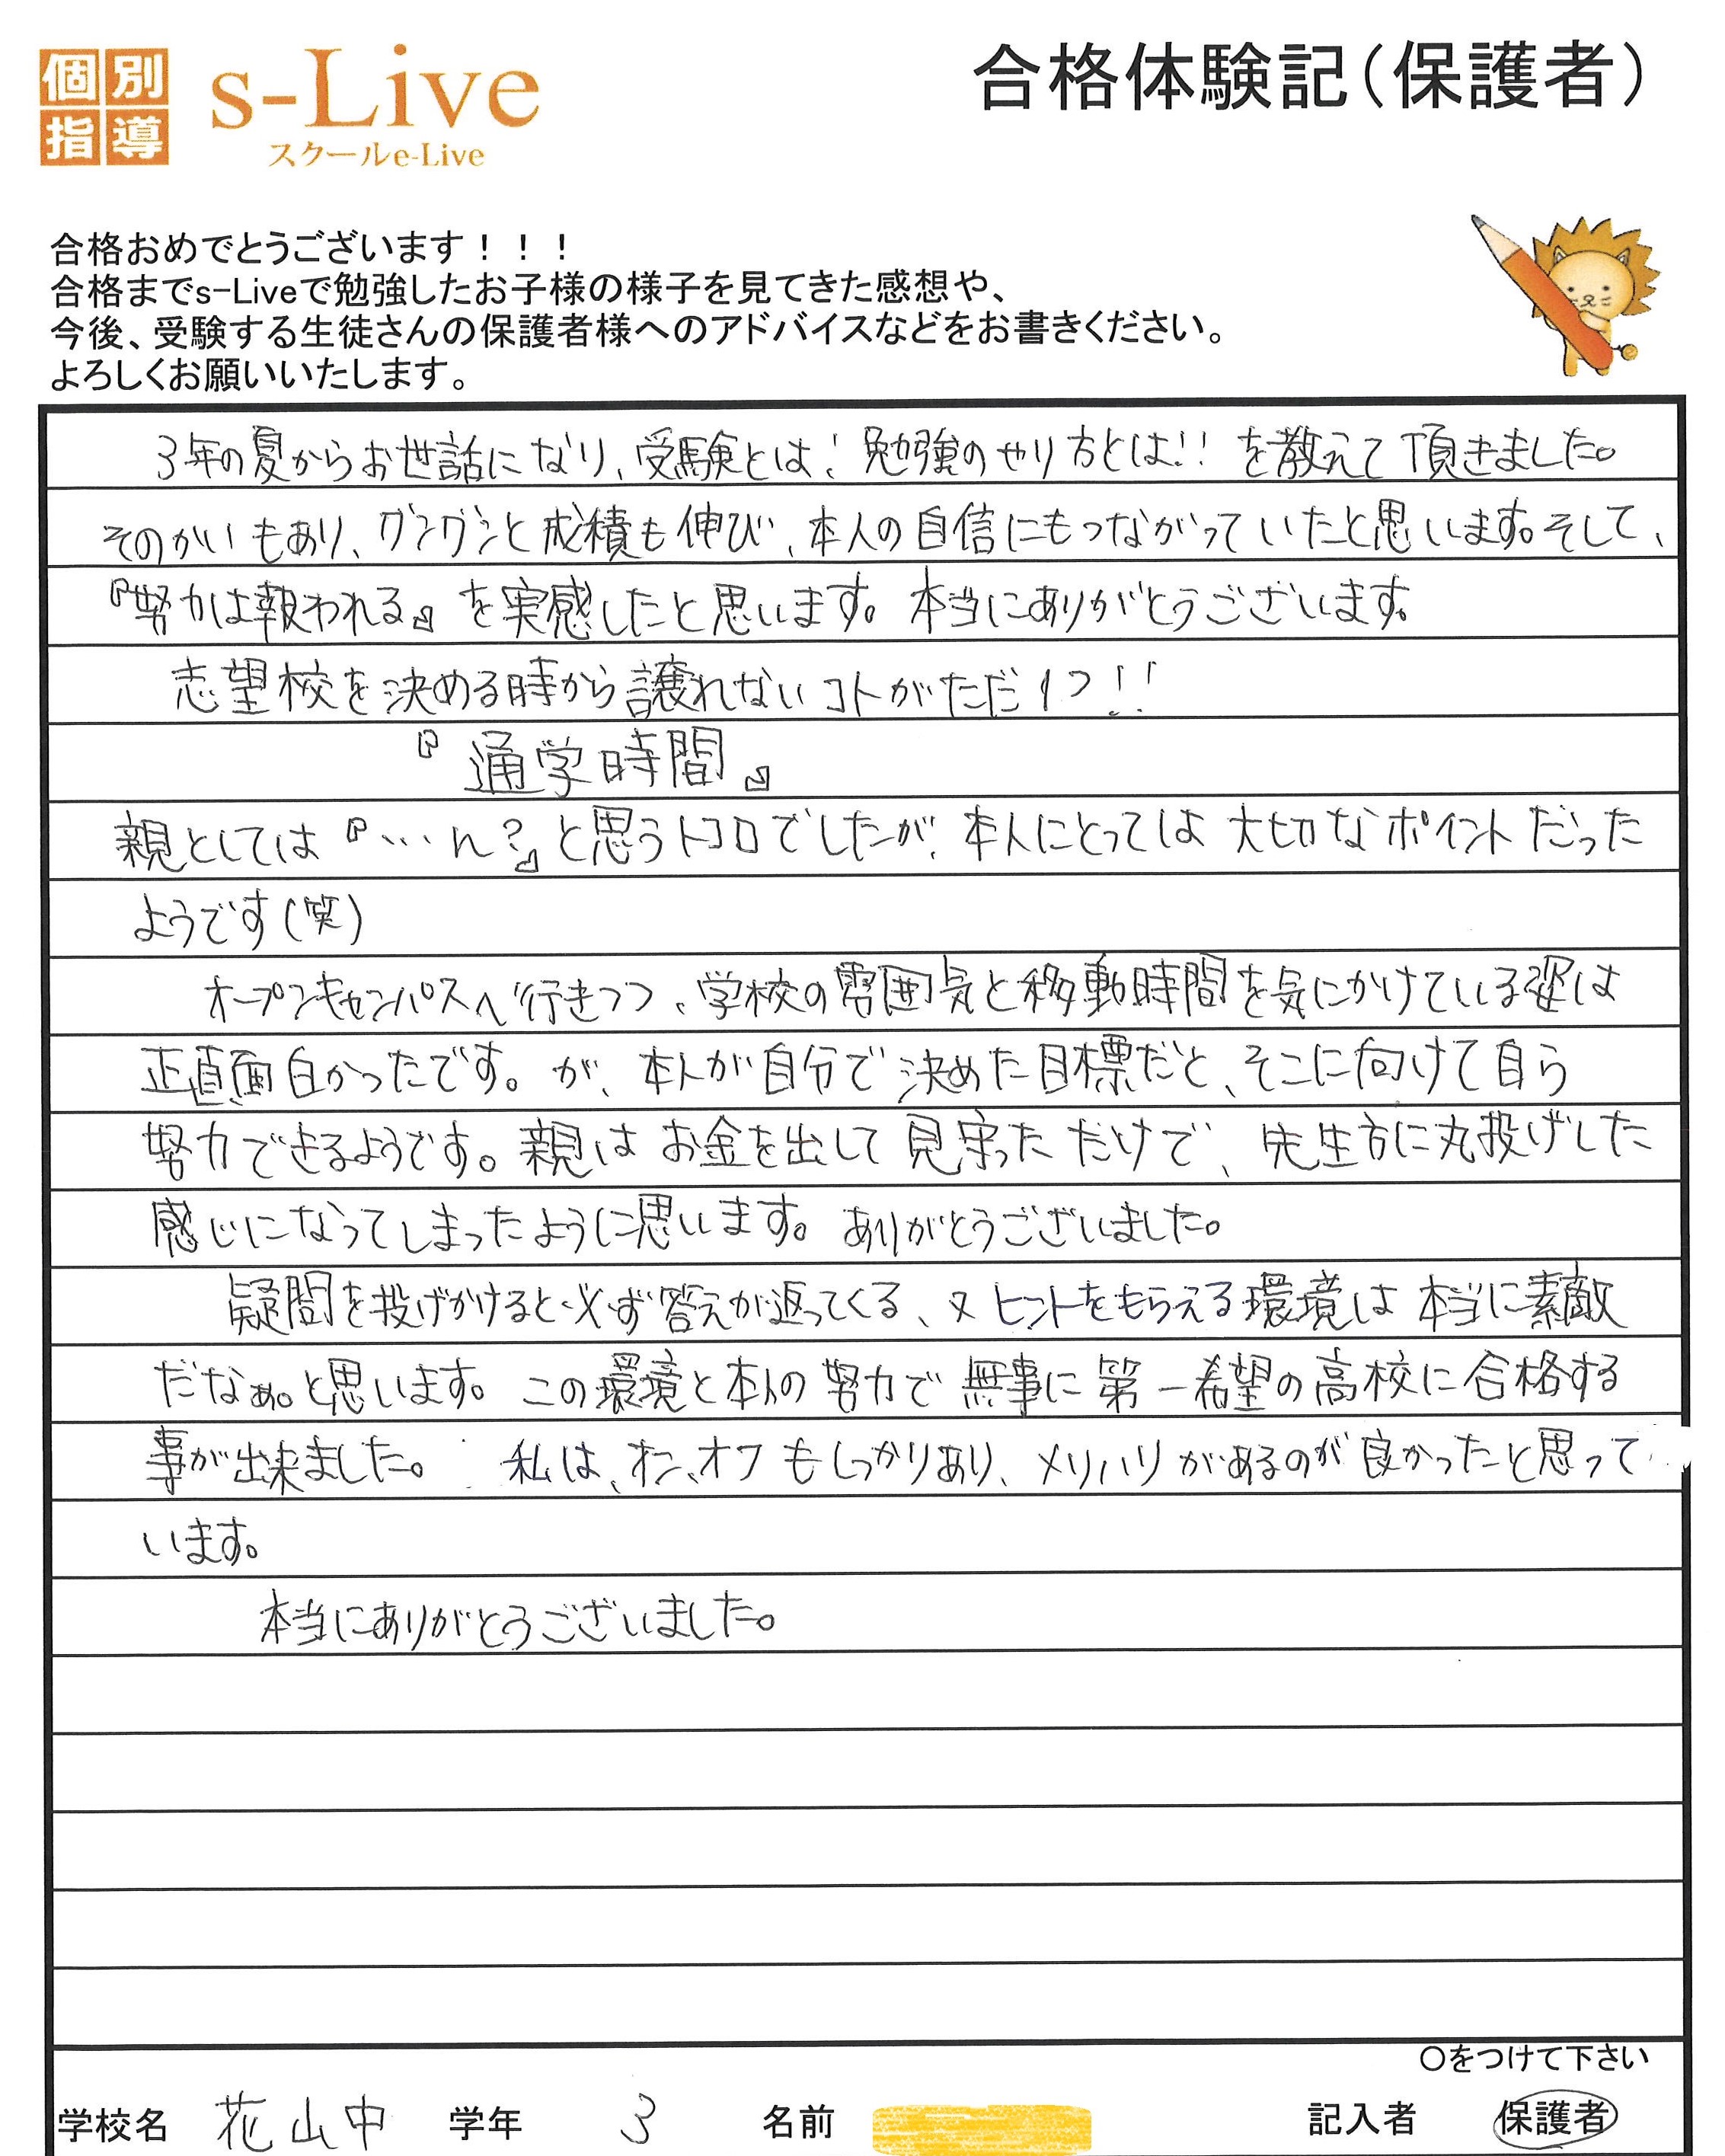 個別
指導
s-Live
スクールe-Live
合格体験記（保護者）
合格おめでとうございます！！！
合格までs-Liveで勉強したお子様の様子を見てきた感想や、
今後、受験する生徒さんの保護者様へのアドバイスなどをお書きください。
よろしくお願いいたします。
3年の夏からお世話になり、受験とは! 勉強のやり方とは!! を教えて頂きました。
そのかいもあり、グングンと成積も伸び、本人の自信にもつながっていたと思います。そして、
『努力は報われる』を実感したと思います。本当にありがとうございます。
志望校を決める時から譲れないコトがただ1つ!!
『通学時間』
親としては『…ん?』と思うトコロでしたが、本人にとっては大切なポイントだった
ようです(笑)
オープンキャンパスへ行きつつ、学校の雰囲気と移動時間を気にかけている姿は
正直面白かったです。が、本人が自分で決めた目標だと、そこに向けて自ら
努力できるようです。親はお金を出して見守っただけで、先生方に丸投げした
感じになってしまったように思います。ありがとうございました。
疑問を投げかけると必ず答えが返ってくる、又ヒントをもらえる環境は本当に素敵
だなぁ。と思います。この環境と本人の努力で無事に第一希望の高校に合格する
事が出来ました。私は、オン、オフもしっかりあり、メリハリがあるのが良かったと思って
います。
本当にありがとうございました。
○をつけて下さい
学校名 花山中 学年 3 名前 記入者 保護者